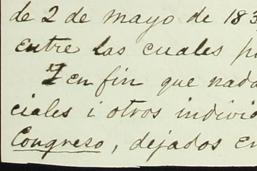 de 2 de mayo de 183
entre las cuales p
I en fin que nada
ciales i otros individ
Congreso, dejados en